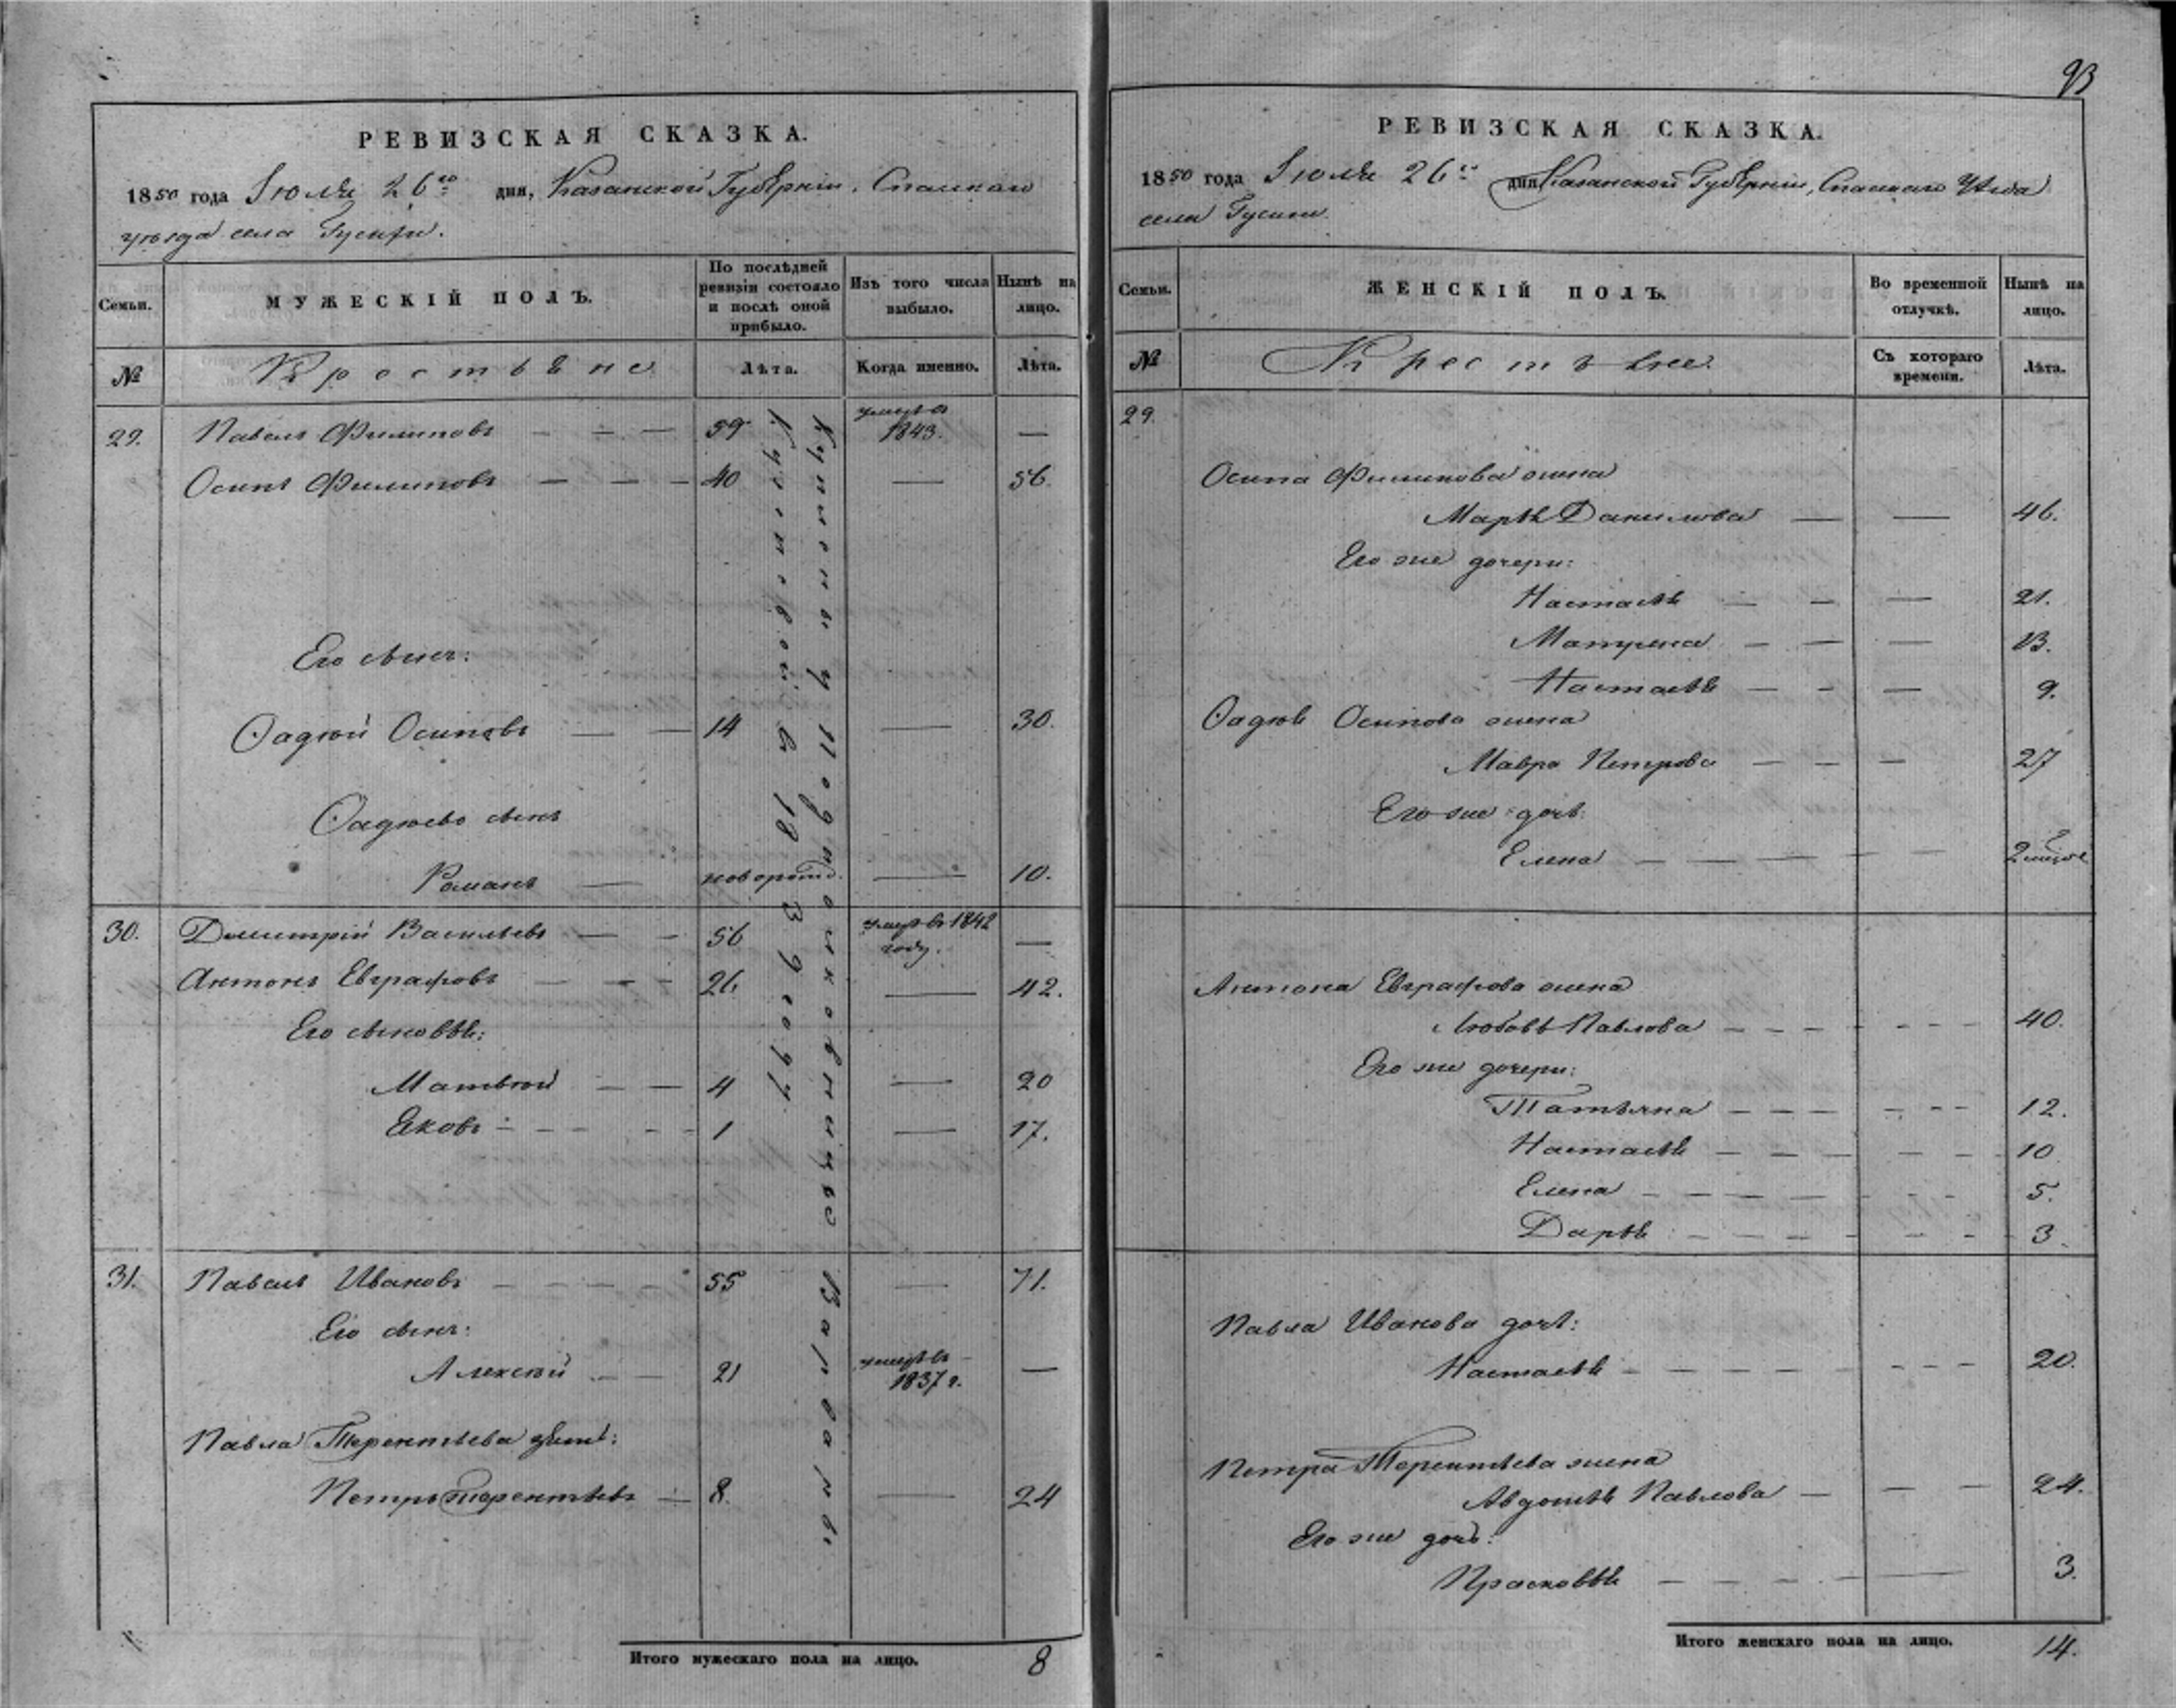 93
РЕВИЗСКАЯ СКАЗКА.
1850 года Іюля 26го дня, Казанской Губерніи, Спаскаго
уезда села Гусихи.
Семьи.
МУЖЕСКІЙ ПОЛЪ.
По послѣдней ревизіи состояло и послѣ оной прибыло.
Изъ того числа выбыло.
Нынѣ на лицо.
№
Крестьяне
Лѣта.
Когда именно.
Лѣта.
29. Павелъ Филиповъ — — — 59 умеръ в 1843. —
Осипъ Филиповъ — — — 40 — 56.
Его сынъ:
Фадѣй Осиповъ — — 14 — 30.
Фадѣево сынъ
Романъ — новорожд. — 10.
30. Дмитрій Васильевъ — — 56 умеръ въ 1842 году. —
Антонъ Евграфовъ — — — 26 — 42.
Его сыновьѣ:
Матвѣй — — 4 — 20
Яковъ — — — — 1 — 17.
31. Павелъ Ивановъ — — — — 55 — 71.
Его сынъ:
Алексѣй — — 21 умеръ въ 1837 г. —
Павла Терентьева зять:
Петръ Терентьевъ — 8. — 24
Куплены у Подполковницы Варвары
в 1839 году
Итого мужескаго пола на лицо. 8
РЕВИЗСКАЯ СКАЗКА.
1850 года Іюля 26го дня Казанской Губерніи, Спаскаго Уезда
села Гусихи.
Семьи.
ЖЕНСКІЙ ПОЛЪ.
Во временной отлучкѣ.
Нынѣ на лицо.
№
Крестьяне
Съ котораго времени.
Лѣта.
29.
Осипа Филипова жена
Марья Данилова — — 46.
Его же дочери:
Настасья — — — 21.
Матрена — — — 13.
Настасья — — — 9.
Фадѣя Осипова жена
Мавра Петрова — — — 27
Его же дочь:
Елена — — — — —
Антона Евграфова жена
Любовь Павлова — — — — — — 40.
Его же дочери:
Татьяна — — — — — — 12.
Настасья — — — — — 10
Елена — — — — — — 5.
Дарья — — — — — — 3.
Павла Иванова дочь:
Настасья — — — — — — — 20.
Петра Терентьева жена
Авдотья Павлова — — — 24.
Его же дочь:
Прасковья — — — — — 3.
Итого женскаго пола на лицо. 14.